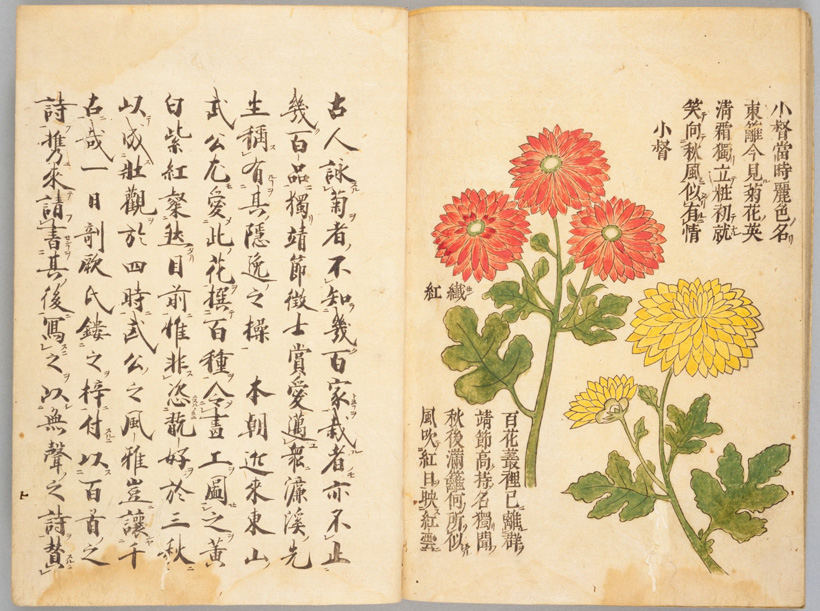 小督當時麗色名
東籬今見菊花英
清霜獨立粧初就
笑向秋風似有情
小督
纎紅
百花叢裡已離群
靖節高持名獨聞
秋後瀰籬何所似
風吹紅日映紅雲
古人詠菊者不知幾百家栽者亦不止
幾百品獨靖節徴士賞愛邁衆濂溪先
生稱有其隱逸之操 本朝近來東山
武公尤愛此花撰百種令畫工圖之黄
白紫紅粲然目前惟非恣翫好於三秋
以成壯觀於四時武公之風雅豈讓千
古哉一日剞厥氏鏤之梓付以百首之
詩携來請書其後寫之以無聲之詩賛